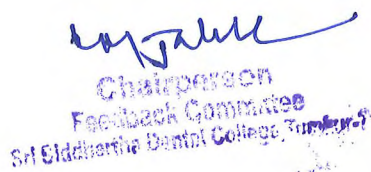 Chairperson
Feedback Committee
Sri Siddhartha Dental College, Tumkur-